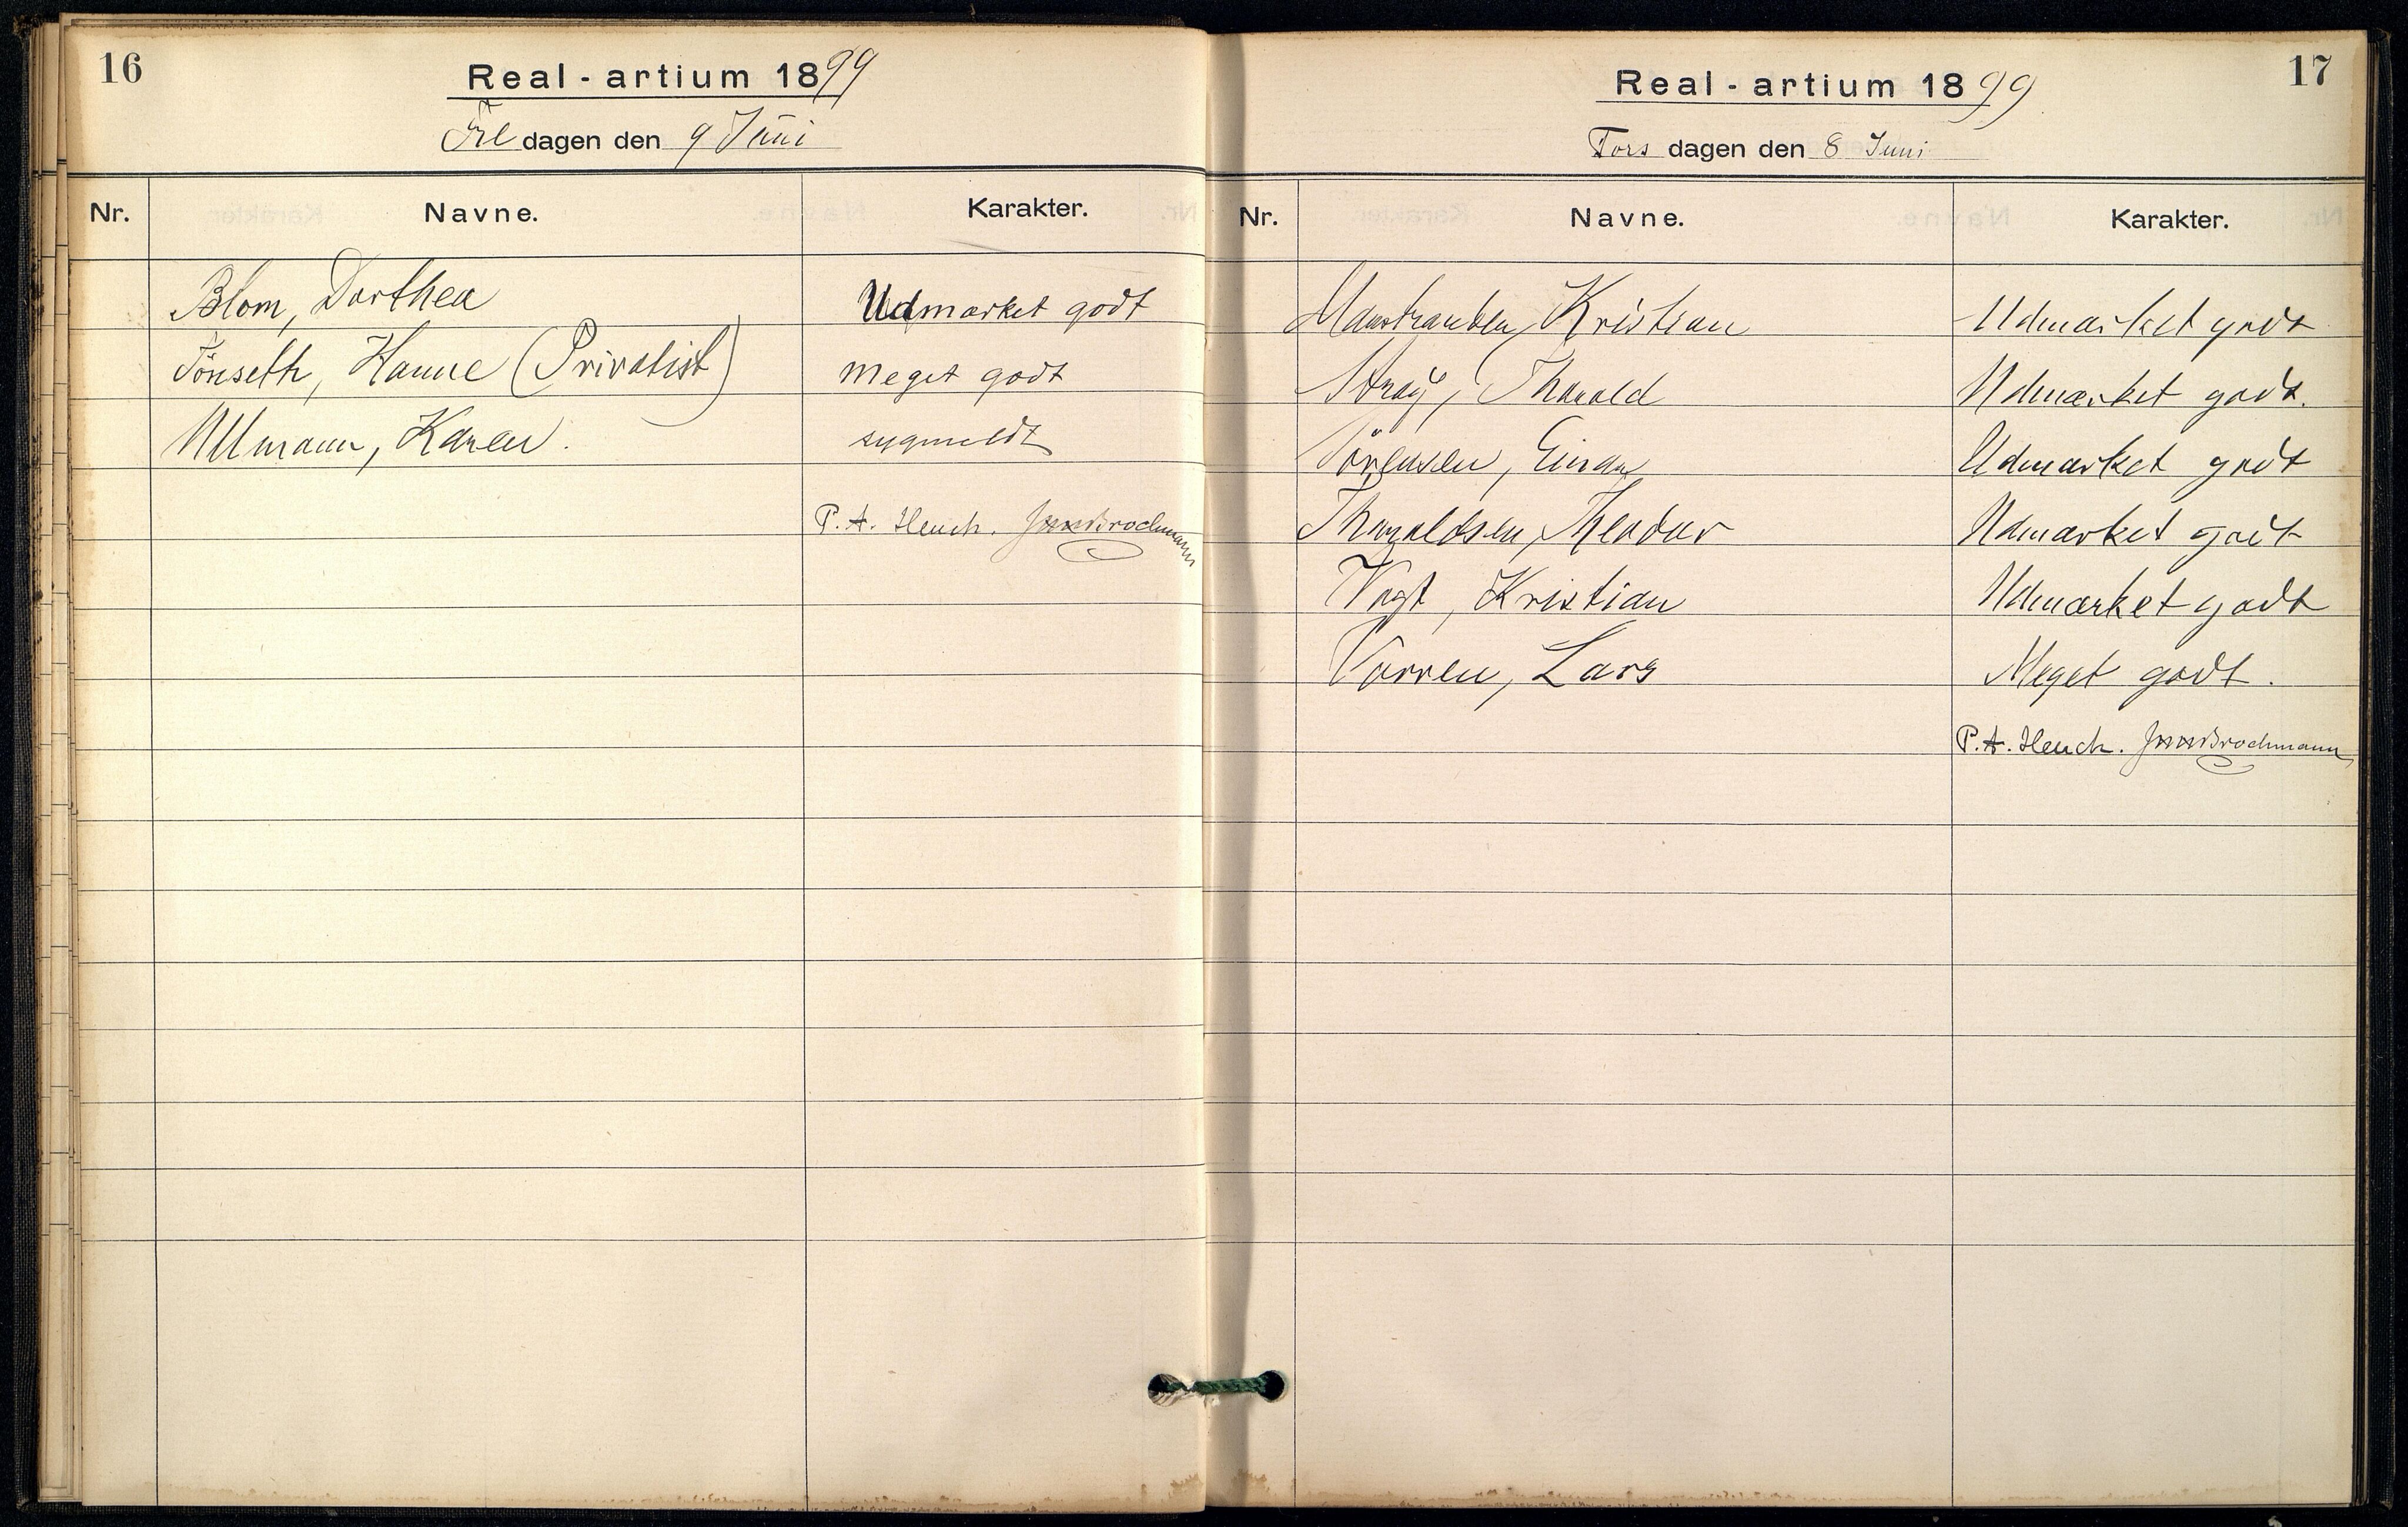 16
Real - artium 1899
Fredagen den 9 Juni
Nr. Navne. Karakter.
Blom, Dorthea Udmærket godt
Tönseth, Hanne (Privatist) Meget godt
Ullmann, Karen. sygmeldt
P. A. Heuch. Brochmann
17
Real - artium 1899
Torsdagen den 8 Juni
Nr. Navne. Karakter.
Kristian Udmærket godt
Stray, Tharald Udmærket godt.
Sörensen, Einar Udmærket godt
Tharaldsen, Theodor Udmærket godt
Vogt, Kristian Udmærket godt
Vorren, Lars Meget godt.
P. A. Heuch. Brochmann